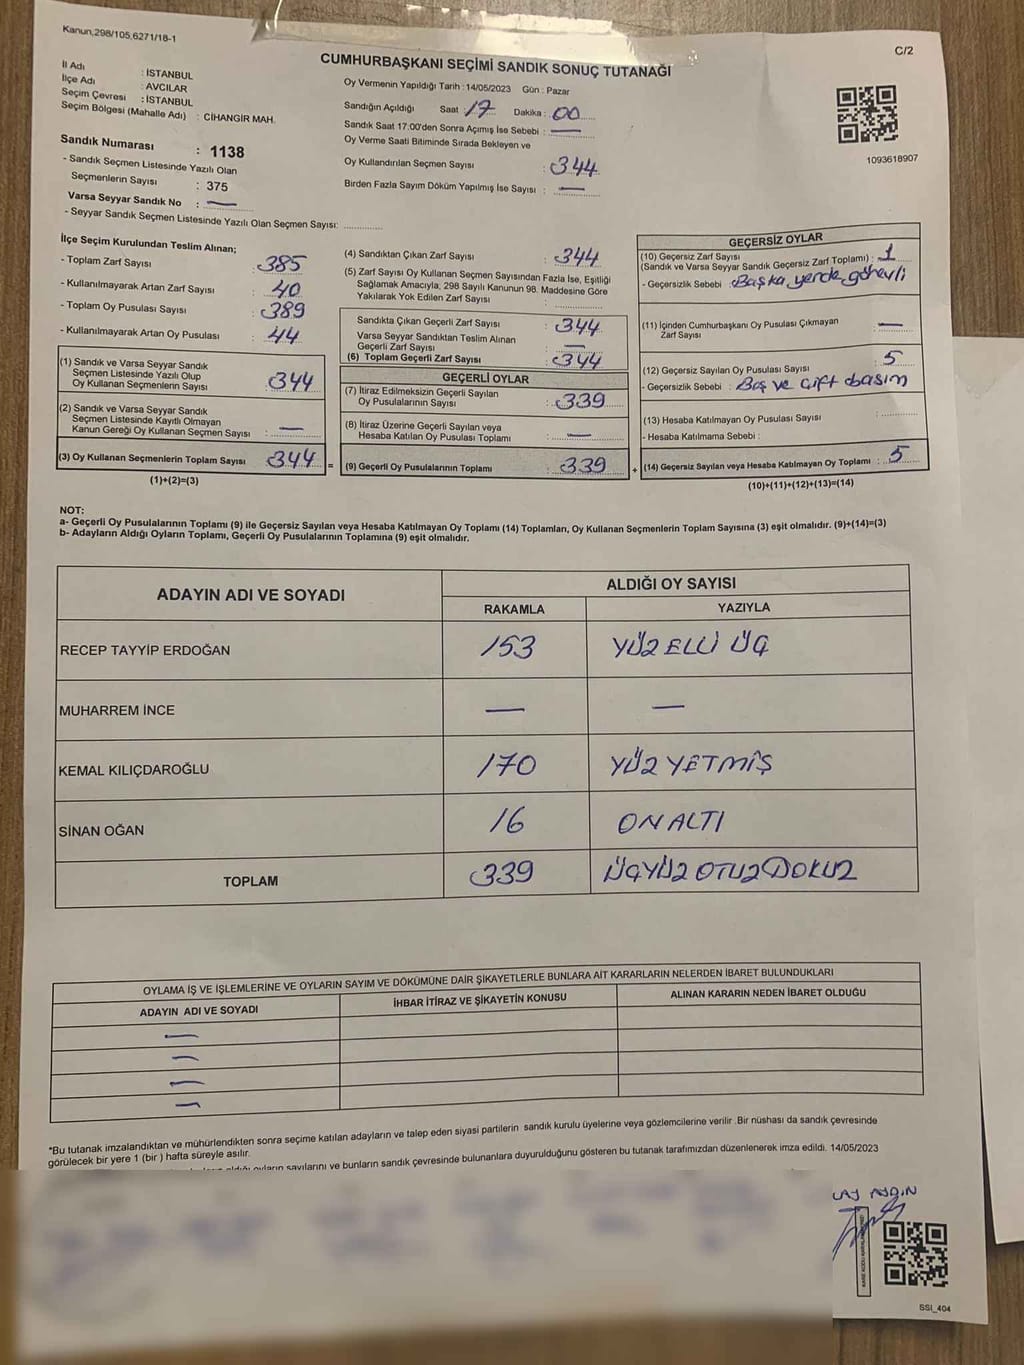 Kanun,298/105,6271/18-1
C/2
CUMHURBAŞKANI SEÇİMİ SANDIK SONUÇ TUTANAĞI
İl Adı : İSTANBUL
İlçe Adı : AVCILAR
Seçim Çevresi : İSTANBUL
Seçim Bölgesi (Mahalle Adı) : CİHANGİR MAH.
Sandık Numarası : 1138
- Sandık Seçmen Listesinde Yazılı Olan
Seçmenlerin Sayısı : 375
Varsa Seyyar Sandık No : —
- Seyyar Sandık Seçmen Listesinde Yazılı Olan Seçmen Sayısı: ..............
Oy Vermenin Yapıldığı Tarih : 14/05/2023 Gün : Pazar
Sandığın Açıldığı Saat : 17 Dakika : 00
Sandık Saat 17.00'den Sonra Açımış İse Sebebi : —
Oy Verme Saati Bitiminde Sırada Bekleyen ve
Oy Kullandırılan Seçmen Sayısı : 344
Birden Fazla Sayım Döküm Yapılmış İse Sayısı : —
1093618907
İlçe Seçim Kurulundan Teslim Alınan;
- Toplam Zarf Sayısı : 385
- Kullanılmayarak Artan Zarf Sayısı : 40
- Toplam Oy Pusulası Sayısı : 389
- Kullanılmayarak Artan Oy Pusulası : 44
(1) Sandık ve Varsa Seyyar Sandık
Seçmen Listesinde Yazılı Olup
Oy Kullanan Seçmenlerin Sayısı : 344
(2) Sandık ve Varsa Seyyar Sandık
Seçmen Listesinde Kayıtlı Olmayan
Kanun Gereği Oy Kullanan Seçmen Sayısı : —
(3) Oy Kullanan Seçmenlerin Toplam Sayısı : 344 =
(1)+(2)=(3)
(4) Sandıktan Çıkan Zarf Sayısı : 344
(5) Zarf Sayısı Oy Kullanan Seçmen Sayısından Fazla İse, Eşitliği
Sağlamak Amacıyla, 298 Sayılı Kanunun 98. Maddesine Göre
Yakılarak Yok Edilen Zarf Sayısı : ..............
Sandıkta Çıkan Geçerli Zarf Sayısı : 344
Varsa Seyyar Sandıktan Teslim Alınan
Geçerli Zarf Sayısı : —
(6) Toplam Geçerli Zarf Sayısı : 344
GEÇERLİ OYLAR
(7) İtiraz Edilmeksizin Geçerli Sayılan
Oy Pusulalarının Sayısı : 339
(8) İtiraz Üzerine Geçerli Sayılan veya
Hesaba Katılan Oy Pusulası Toplamı : —
(9) Geçerli Oy Pusulalarının Toplamı : 339 +
GEÇERSİZ OYLAR
(10) Geçersiz Zarf Sayısı
(Sandık ve Varsa Seyyar Sandık Geçersiz Zarf Toplamı) : 1
- Geçersizlik Sebebi : Başka yerde görevli
(11) İçinden Cumhurbaşkanı Oy Pusulası Çıkmayan
Zarf Sayısı : —
(12) Geçersiz Sayılan Oy Pusulası Sayısı : 5
- Geçersizlik Sebebi : Boş ve Çift basım
(13) Hesaba Katılmayan Oy Pusulası Sayısı : ..............
- Hesaba Katılmama Sebebi :
(14) Geçersiz Sayılan veya Hesaba Katılmayan Oy Toplamı : 5
(10)+(11)+(12)+(13)=(14)
NOT:
a- Geçerli Oy Pusulalarının Toplamı (9) ile Geçersiz Sayılan veya Hesaba Katılmayan Oy Toplamı (14) Toplamları, Oy Kullanan Seçmenlerin Toplam Sayısına (3) eşit olmalıdır. (9)+(14)=(3)
b- Adayların Aldığı Oyların Toplamı, Geçerli Oy Pusulalarının Toplamına (9) eşit olmalıdır.
ADAYIN ADI VE SOYADI ALDIĞI OY SAYISI
RAKAMLA YAZIYLA
RECEP TAYYİP ERDOĞAN 153 YÜZ ELLİ ÜÇ
MUHARREM İNCE — —
KEMAL KILIÇDAROĞLU 170 YÜZ YETMİŞ
SİNAN OĞAN 16 ON ALTI
TOPLAM 339 ÜÇYÜZ OTUZ DOKUZ
OYLAMA İŞ VE İŞLEMLERİNE VE OYLARIN SAYIM VE DÖKÜMÜNE DAİR ŞİKAYETLERLE BUNLARA AİT KARARLARIN NELERDEN İBARET BULUNDUKLARI
ADAYIN ADI VE SOYADI İHBAR İTİRAZ VE ŞİKAYETİN KONUSU ALINAN KARARIN NEDEN İBARET OLDUĞU
—
—
—
—
*Bu tutanak imzalandıktan ve mühürlendikten sonra seçime katılan adayların ve talep eden siyasi partilerin sandık kurulu üyelerine veya gözlemcilerine verilir .Bir nüshası da sandık çevresinde
görülecek bir yere 1 (bir ) hafta süreyle asılır.
aldığı oyların sayılarını ve bunların sandık çevresinde bulunanlara duyurulduğunu gösteren bu tutanak tarafımızdan düzenlenerek imza edildi. 14/05/2023
AYDIN
SSI_404